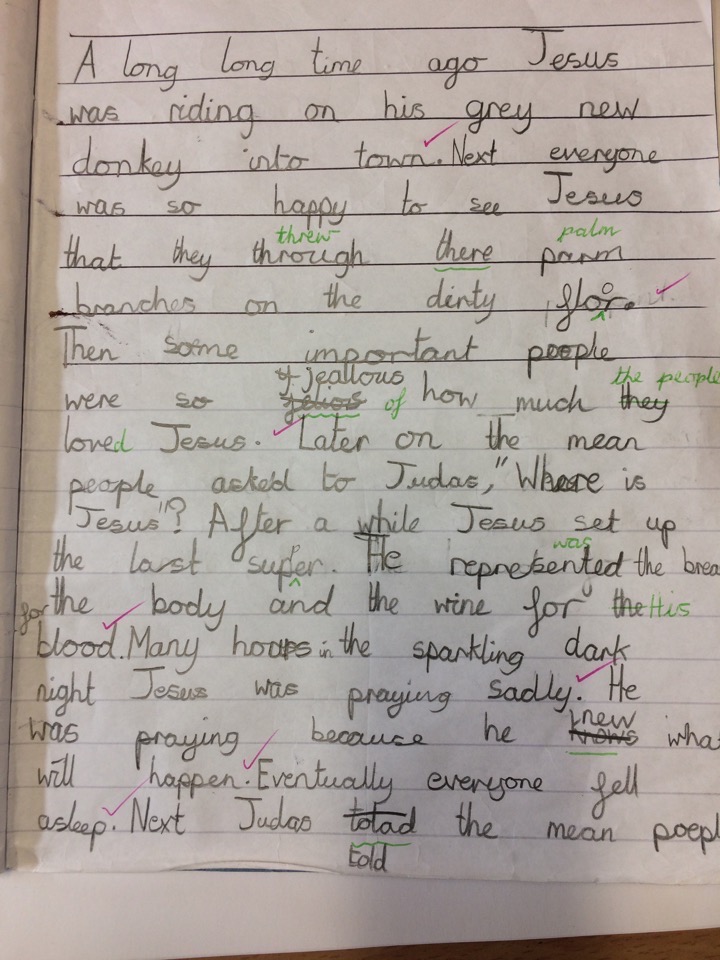 A long long time ago Jesus
was riding on his grey new
donkey into town. Next everyone
was so happy to see Jesus
threw palm
that they through there parm
branches on the dirty flor.
o
Then some important people
jealous the people
were so jelios of how much they
loved Jesus. Later on the mean
people asked to Judas, "Where is
Jesus"? After a while Jesus set up
the last super. He represented the brea
p was
for the body and the wine for the His
blood. Many hoors in the sparkling dark
night Jesus was praying sadly. He
knew
was praying because he knows what
will happen. Eventually everyone fell
asleep. Next Judas totad the mean poepl
told